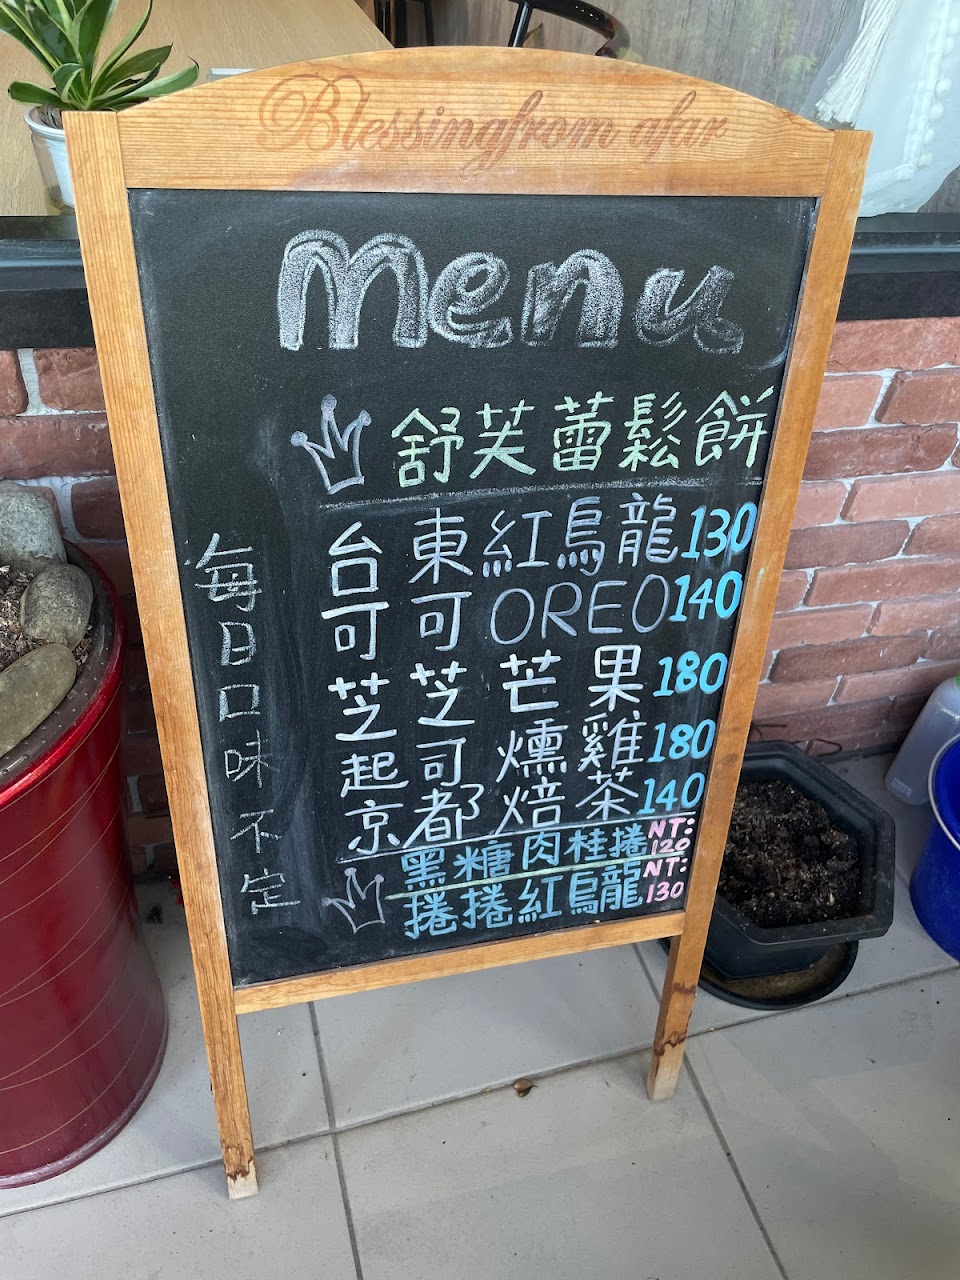 Blessingfrom afar
menu
舒芙蕾鬆餅
台東紅烏龍130
可可OREO140
芝芝芒果180
起司燻雞180
京都焙茶140
黑糖肉桂捲NT:120
捲捲紅烏龍NT:130
每日口味不定